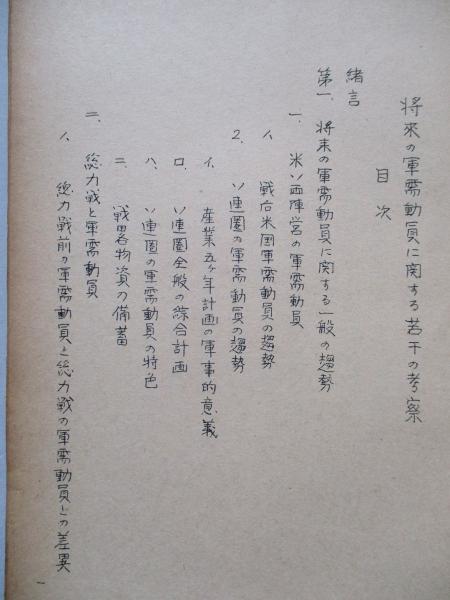 将来の軍需動員に関する若干の考察
目次
緒言
第一、将来の軍需動員に関する一般の趨勢
一、米ソ両陣営の軍需動員
1、戦后米国軍需動員の趨勢
2、ソ連圏の軍需動員の趨勢
イ、産業五ヶ年計画の軍事的意義
ロ、ソ連圏全般の綜合計画
ハ、ソ連圏の軍需動員の特色
ニ、戦用各物資の備蓄
二、総力戦と軍需動員
1、総力戦前の軍需動員と総力戦の軍需動員との差異
一